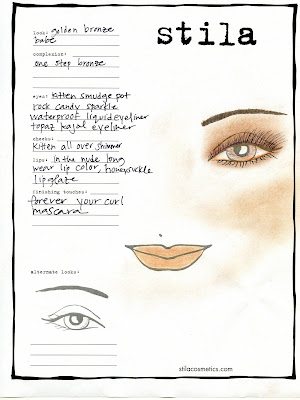 stila
look: golden bronze
babe
complexion:
one step bronze
eyes: kitten smudge pot
rock candy sparkle
waterproof liquid eyeliner
topaz kajal eyeliner
cheeks:
kitten all over shimmer
lips: in the nude long
wear lip color, honeysuckle
lip glaze
finishing touches:
forever your curl
mascara
alternate looks:
stilacosmetics.com